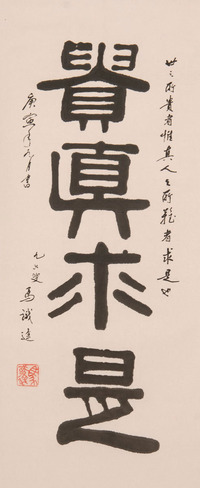 世之所貴者惟真人之所難者求是也
貴眞求是
庚寅年月書
九六叟馬識途